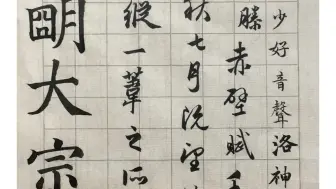 少好音聲洛神
滕赤壁賦壬
秋七月既望
縱一葦之所
朙大宗